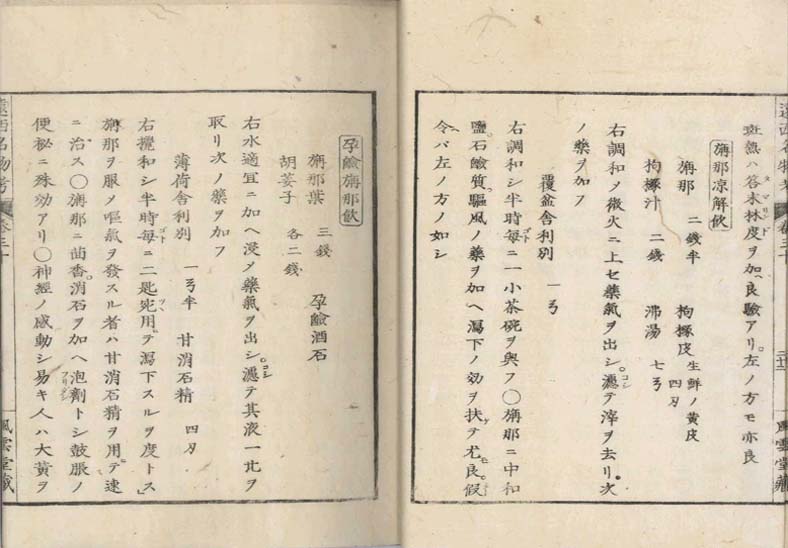 斑熱ハ荅末林度ヲ加ヘ良驗アリ。左ノ方モ亦良
旃那涼解飲
旃那 二錢半 枸櫞皮 生鮮ノ黄皮 四刄
枸櫞汁 二錢 沸湯 七弓
右調和メ微火ニ上セ藥氣ヲ出シ。濾テ滓ヲ去リ。次
ノ藥ヲ加フ
覆盆舎利別 一弓
右調和シ半時毎ニ一小茶碗ヲ與フ〇旃那ニ中和
鹽。石鹸質。驅風ノ藥ヲ加ヘ瀉下ノ効ヲ扶テ尤良。假
令バ左ノ方ノ如シ
孕鹸旃那飲
旃那葉 三錢 孕鹸酒石
胡荽子 各二錢
右水適宜ニ加ヘ浸メ藥氣ヲ出シ。濾テ其液一
取リ次ノ藥ヲ加フ
薄荷舎利別 一弓半 甘消石精 四刄
右攪和シ半時毎ニ二匙宛用テ瀉下スルヲ度トス」
旃那ヲ服メ嘔氣ヲ發スル者ハ甘消石精ヲ用テ速
ニ治ス〇旃那ニ茴香。消石ヲ加ヘ泡劑トシ鼓脹ノ
便秘ニ殊効アリ〇神經ノ感動シ易キ人ハ大黄ヲ
遠西名物考
卷三十
風雲堂藏